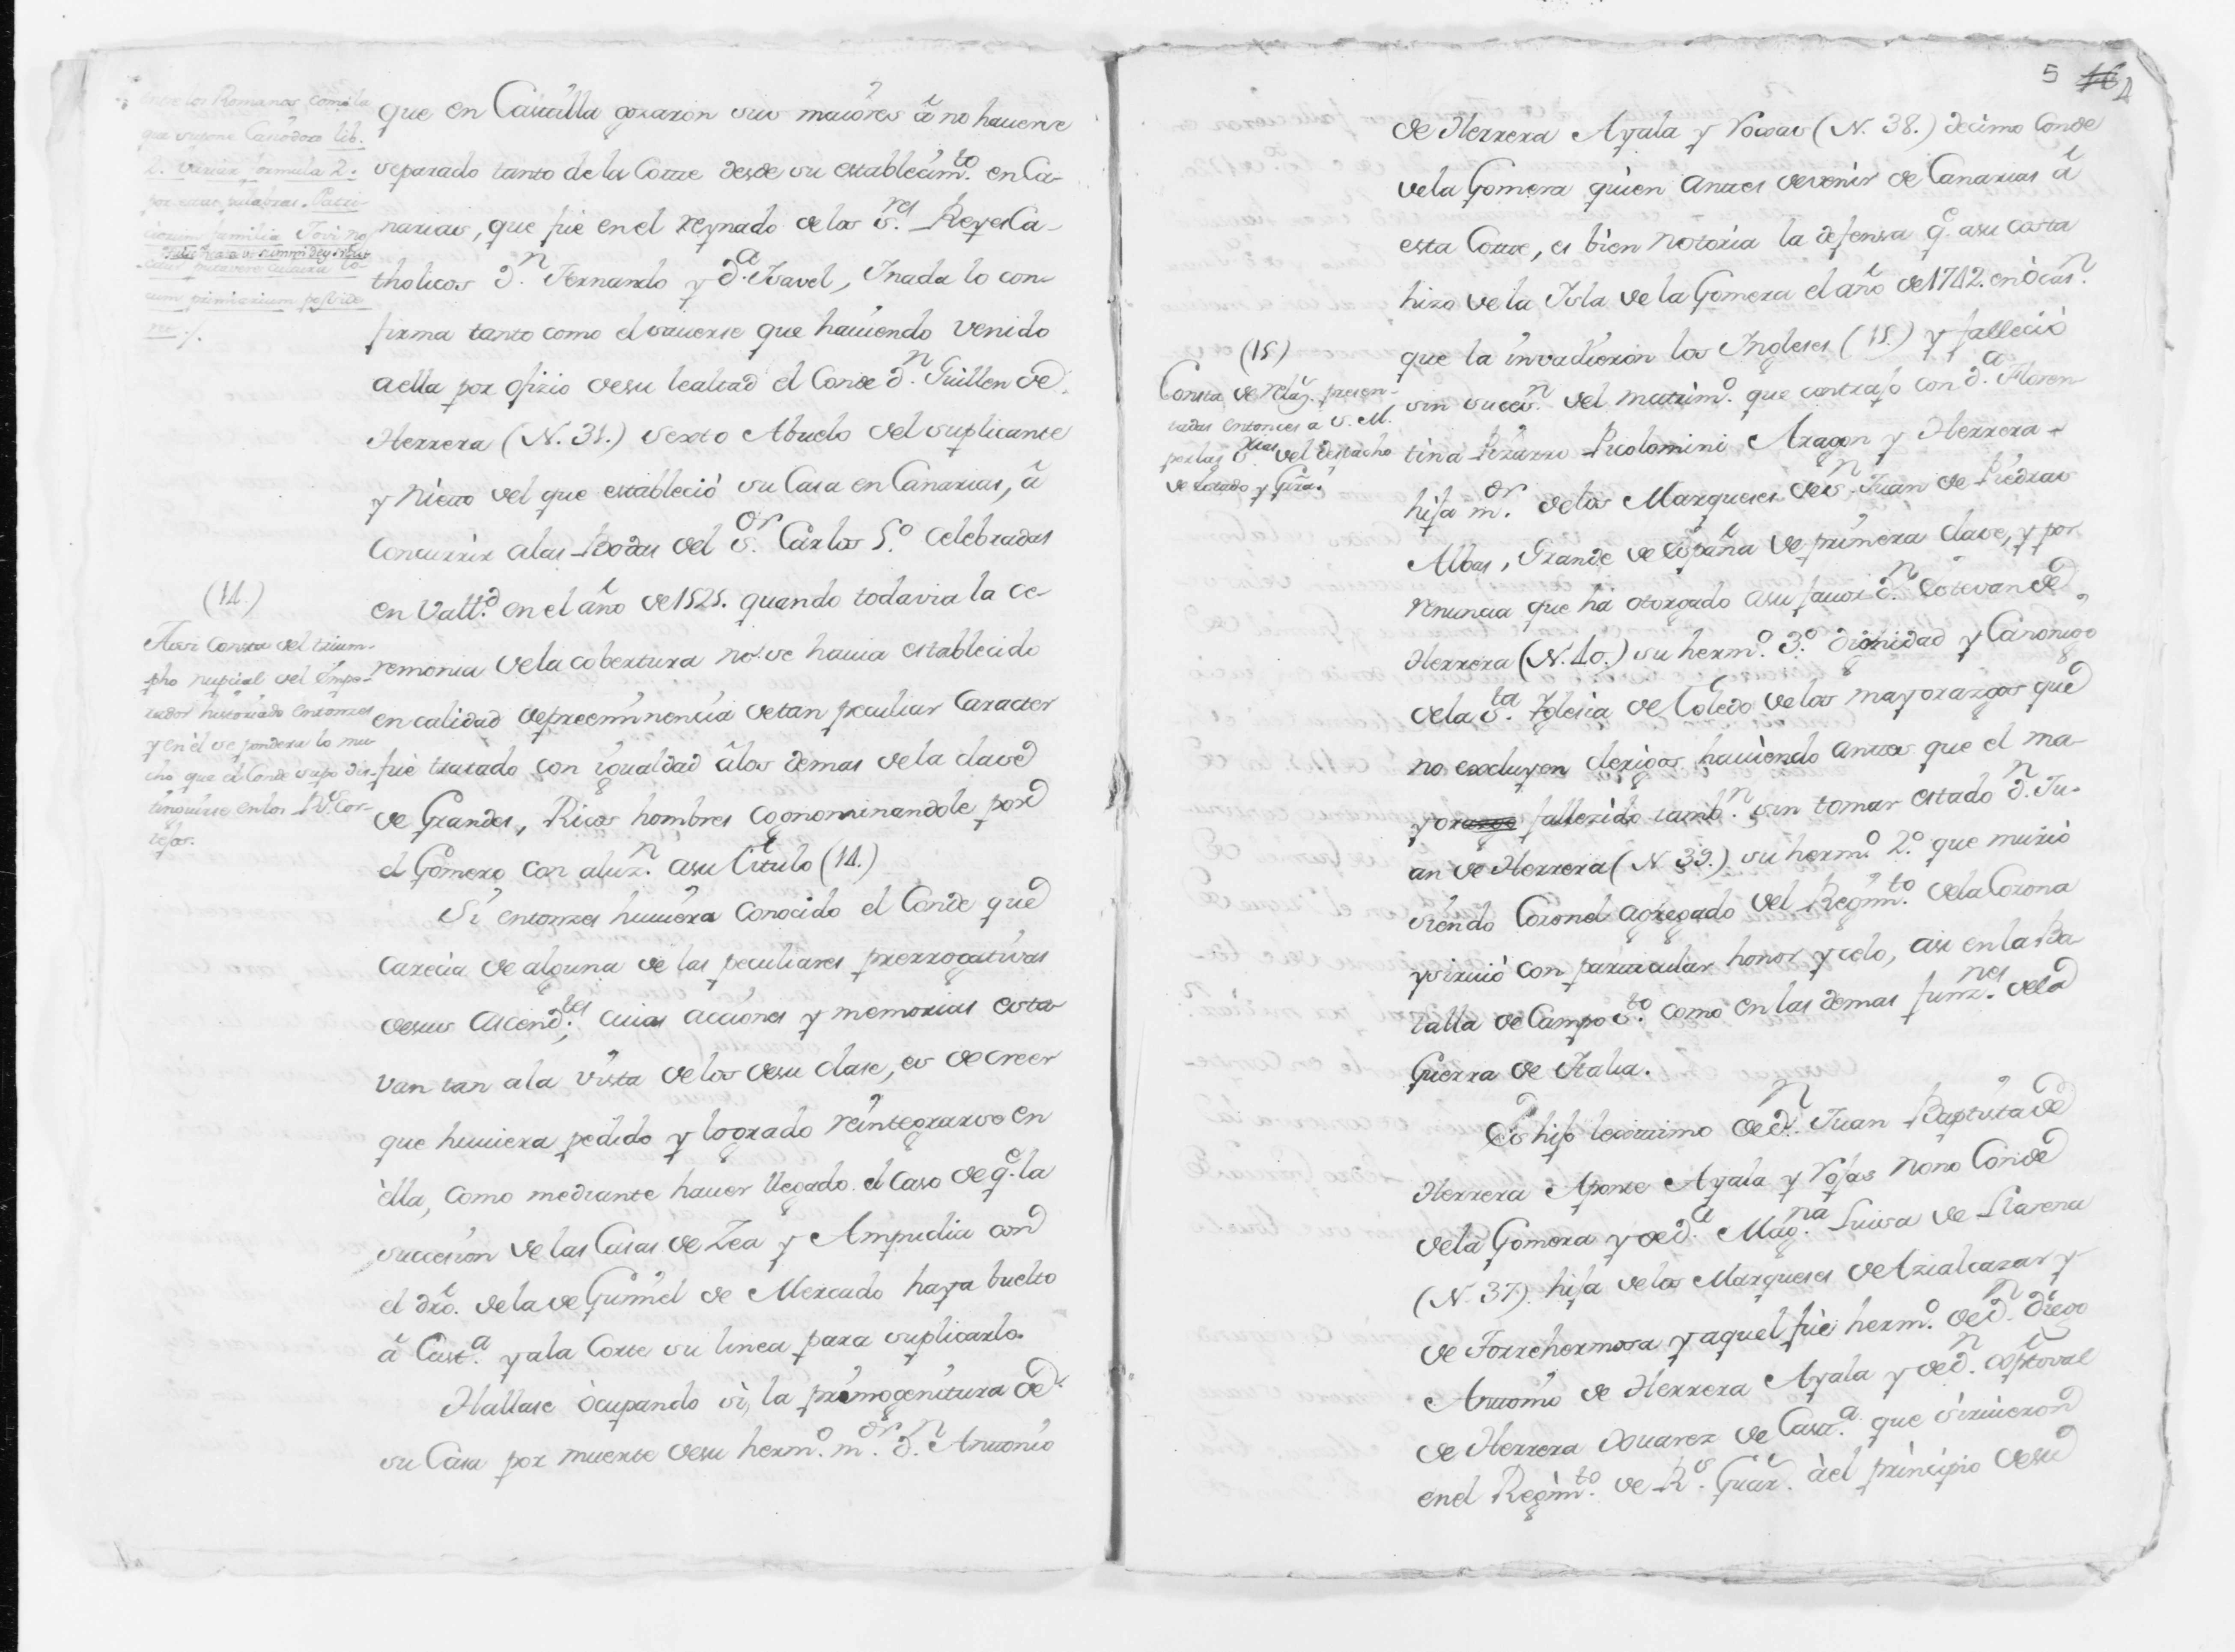 entre los Romanos como la
que supone Casiodoro lib.
2. variar. formula 2.
por estas palabras. Patri-
ciorum familia Jovi
cum primarium posside
re ./.
que en Castilla gozaron sus maiores â no haverse
separado tanto de la Corte desde su establecim.to en Ca-
narias, que fue en el reynado de los S.res Reyes Ca-
tholicos D.n Fernando y D.a Isavel, Inada lo con-
firma tanto como el saverse que haviendo venido
aella por ofizio desu lealtad el Conde D.n Guillen de
Herrera (N. 31.) Sexto Abuelo del suplicante
y Nieto del que estableció su Casa en Canarias, â
concurrir alas Bodas del S.or Carlos 5.o Celebradas
en Vall.d en el año de 1525. quando todavia la ce-
remonia dela cobertura no se havia establecido
en calidad depreeminencia detan peculiar Caracter
fue tratado con igualdad âlos demas dela clase
de Grandes, Ricos hombres cognominandole por
el Gomero con aluz.n asu Titulo (14.)
(14.)
Assi consta del trium-
pho nupcial del Empe-
rador historiado entonzes
y en èl se pondera lo mu-
cho que el Conde supo dis-
tinguirse en los R.s Cor-
tejos.
Si entonzes huviera conocido el Conde que
carecia de alguna de las peculiares prerrogativas
desus Ascend.tes, cuias acciones y memorias esta-
van tan ala vista delos desu clase, es de creer
que huviera pedido y logrado reintegrarse en
èlla, como mediante haver llegado el caso de q.e la
succesion de las Casas de Zea y Ampudia con
el dro. dela de Gumiel de Mercado haya buelto
â Cast.a y ala Corte su linea para suplicarlo.
Hallase òcupando sì, la primogenitura de
su Casa por muerte desu herm.o m.or D.n Antonio
5 16 4
de Herrera Ayala y Roxas (N. 38.) decimo Conde
dela Gomera quien antes devenir de Canarias â
esta Corte, es bien notoria la defensa q.e asu costa
hizo de la Isla de la Gomera el año de 1742. en òcas.n
que la invadieron los Ingleses (15.) y falleciò
sin succes.n del matrim.o que contrajo con D.a Floren-
tina Pizarro Picolomini Aragon y Herrera
hija m.or delos Marqueses de S.n Juan de Piedras
Albas, Grande de España de primera clase, y por
renuncia que há otorgado asu favor D.n Estevan de
Herrera (N. 40.) su herm.o 3.o dignidad y Canonigo
dela S.ta Iglesia de Toledo delos mayorazgos que
no excluyen clerigos haviendo antes que el ma-
yorazgo fallezido tamb.n sin tomar estado D.n Ju-
an de Herrera (N. 39.) su herm.o 2.o que muriò
siendo Coronel agregado del Regim.to dela Corona
ysirviò con particular honor y celo, asi en la Ba-
talla de Campo S.to como en las demas funz.nes dela
Guerra de Italia.
(15)
Consta de relaz. presen-
tadas entonces a S. M.
por las S.rias del despacho
de Estado y Grã.
Es hijo lexitimo de D.n Juan Baptista de
Herrera Aponte Ayala y Rojas nono Conde
dela Gomera y de D.a Mag.na Luisa de Llarena
(N. 37.) hija delos Marqueses de Azialcazar y
de Torrehermosa y aquel fue herm.o de D.n Diego
Antonio de Herrera Ayala y de D.n Xptoval
de Herrera Xuarez de Cast.a que sirvieron
en el Regim.to de R.s Guar. àel principio desu